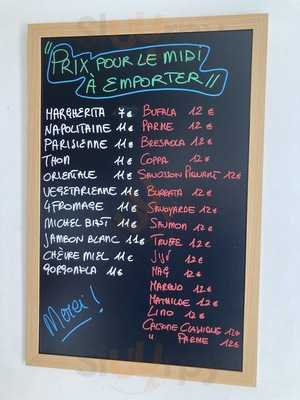 "PRIX POUR LE MIDI
À EMPORTER"
MARGHERITA 7€
NAPOLITAINE 11€
PARISIENNE 11€
THON 11€
ORIENTALE 11€
VEGETARIENNE 11€
4 FROMAGE 11€
MICHEL BIST 11€
JAMBON BLANC 11€
CHÈVRE MIEL 11€
GORGONZOLA 11€
Merci!
BUFALA 12€
PARME 12€
BRESAOLA 12€
COPPA 12€
SAUCISSON PIQUANT 12€
BURRATA 12€
SAVOYARDE 12€
SAUMON 12€
TRUFFE 12€
JIJI 12€
MAG 12€
MARINO 12€
MATHILDE 12€
LINO 12€
CALZONE CLASSIQUE 12€
" PARME 12€